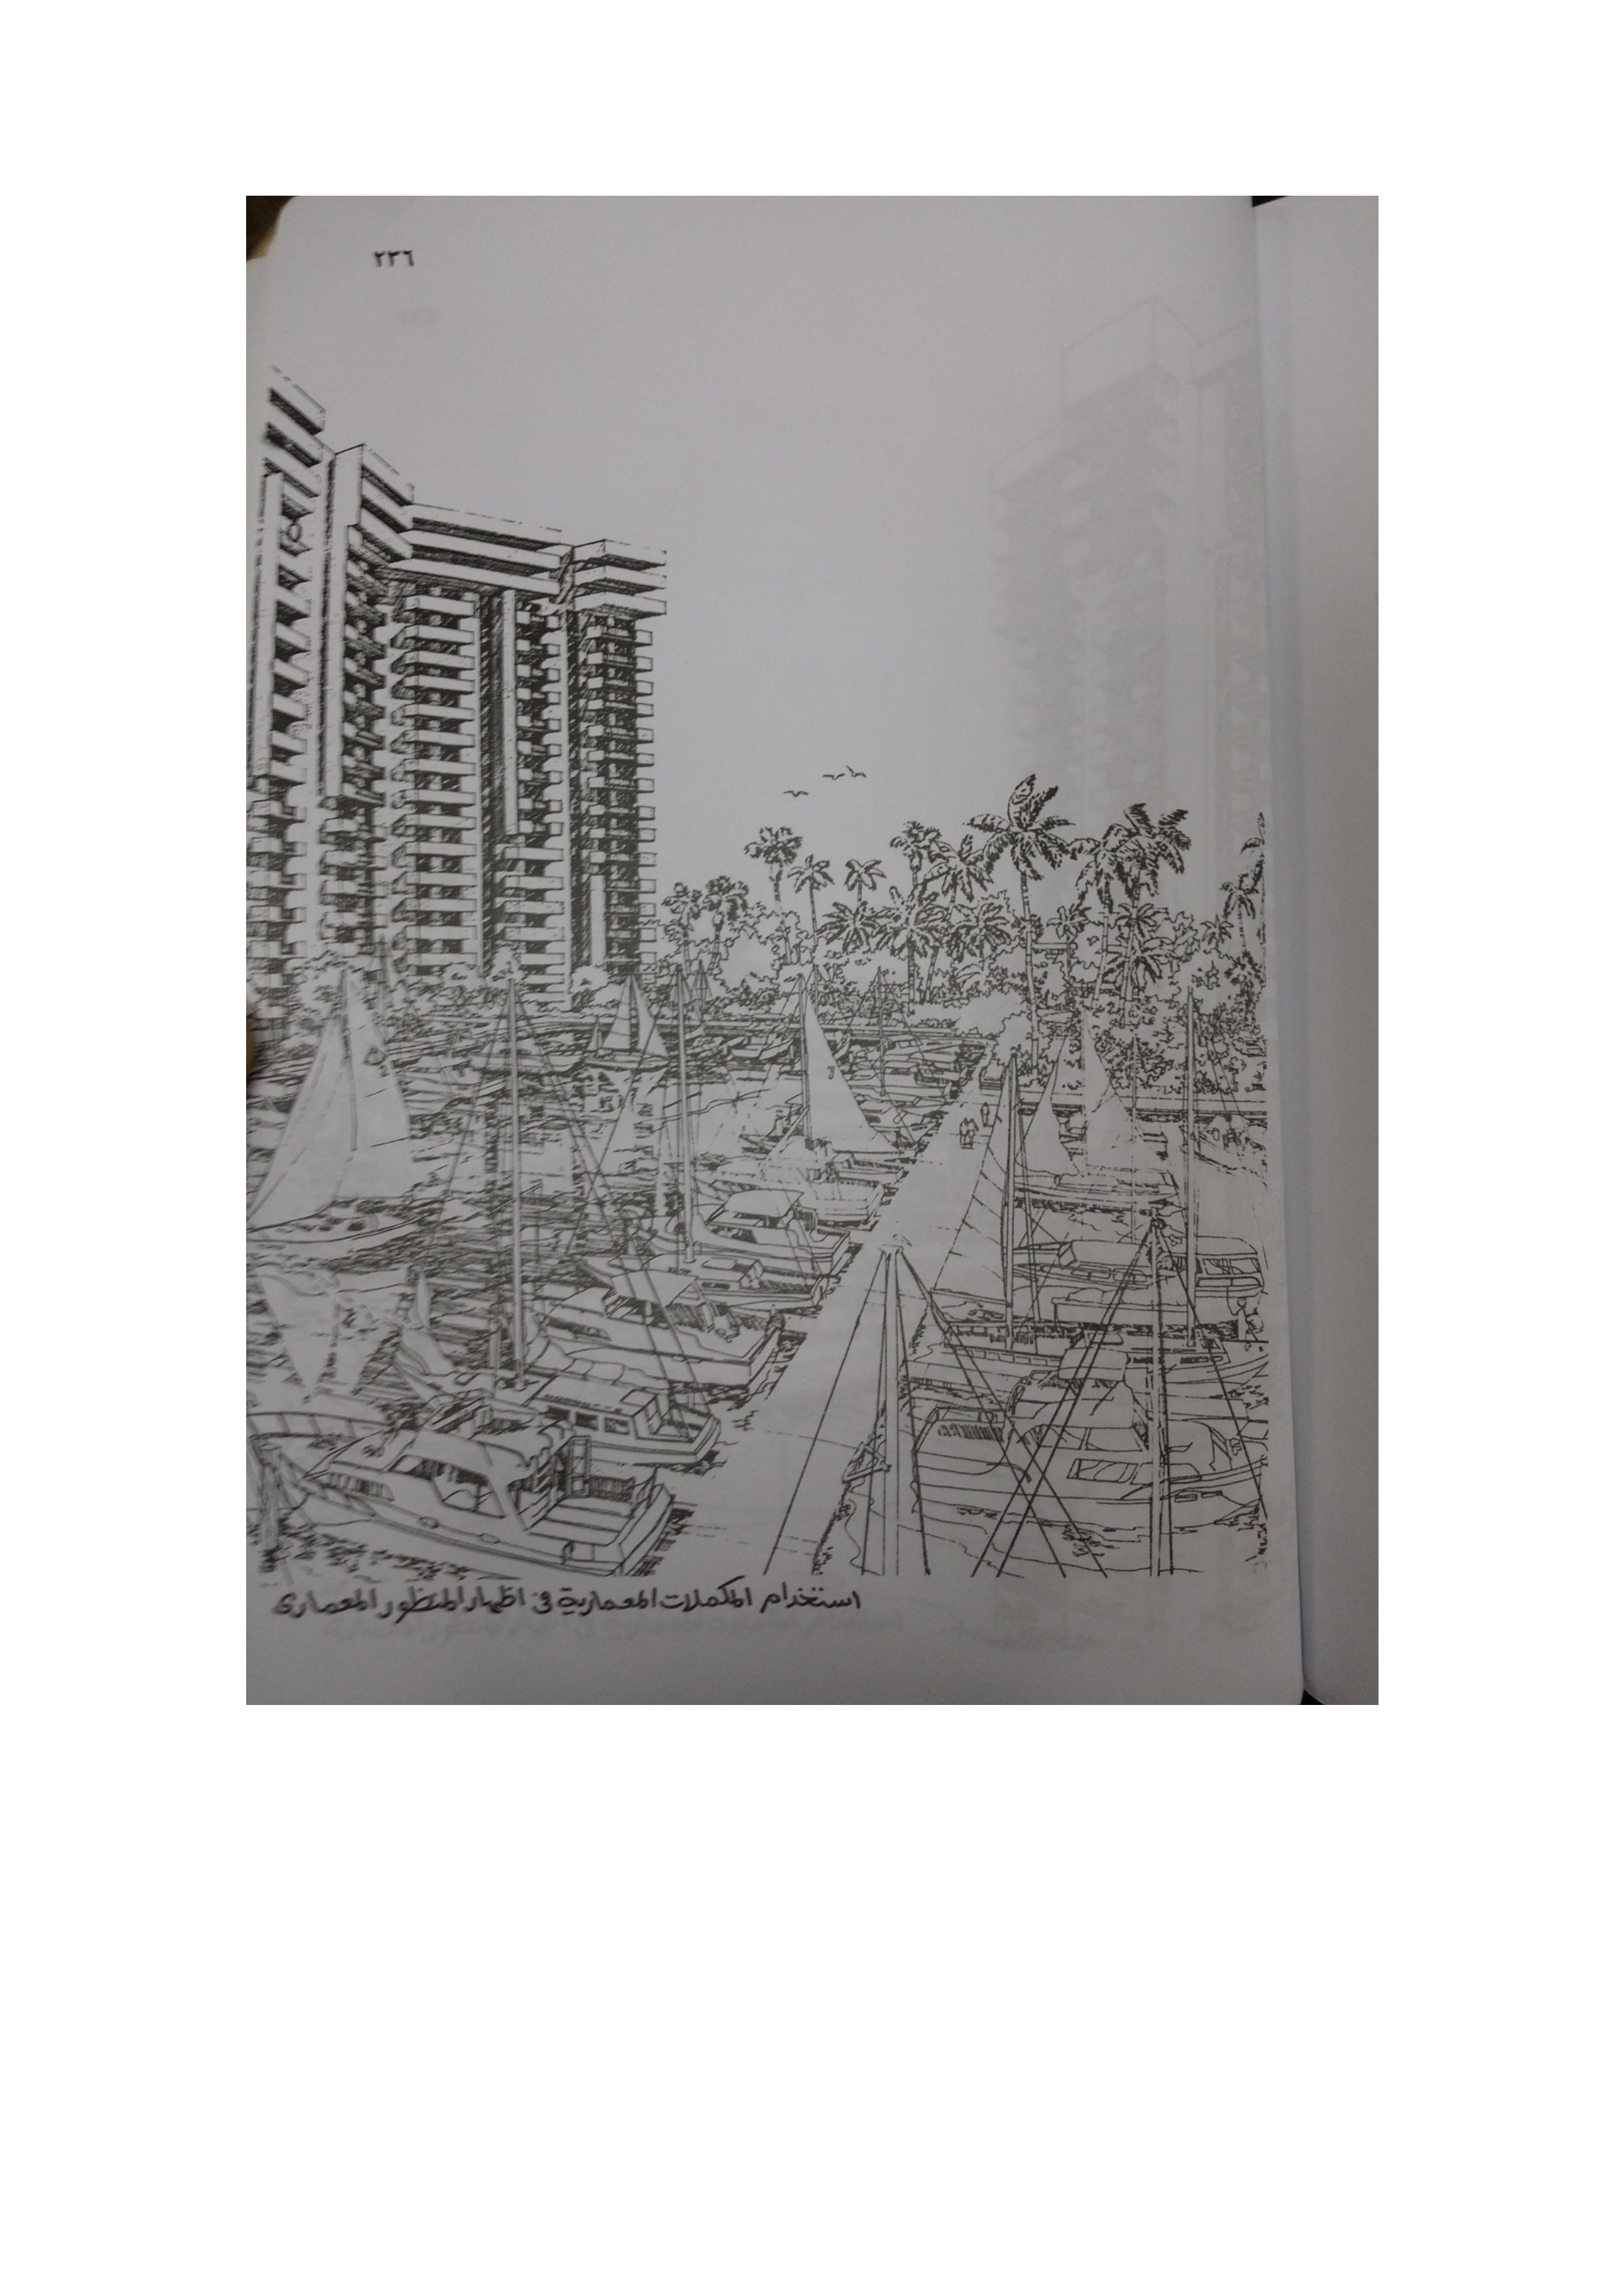 ٢٣٦
استخدام المكملات المعمارية فى اظهار المنظور المعمارى